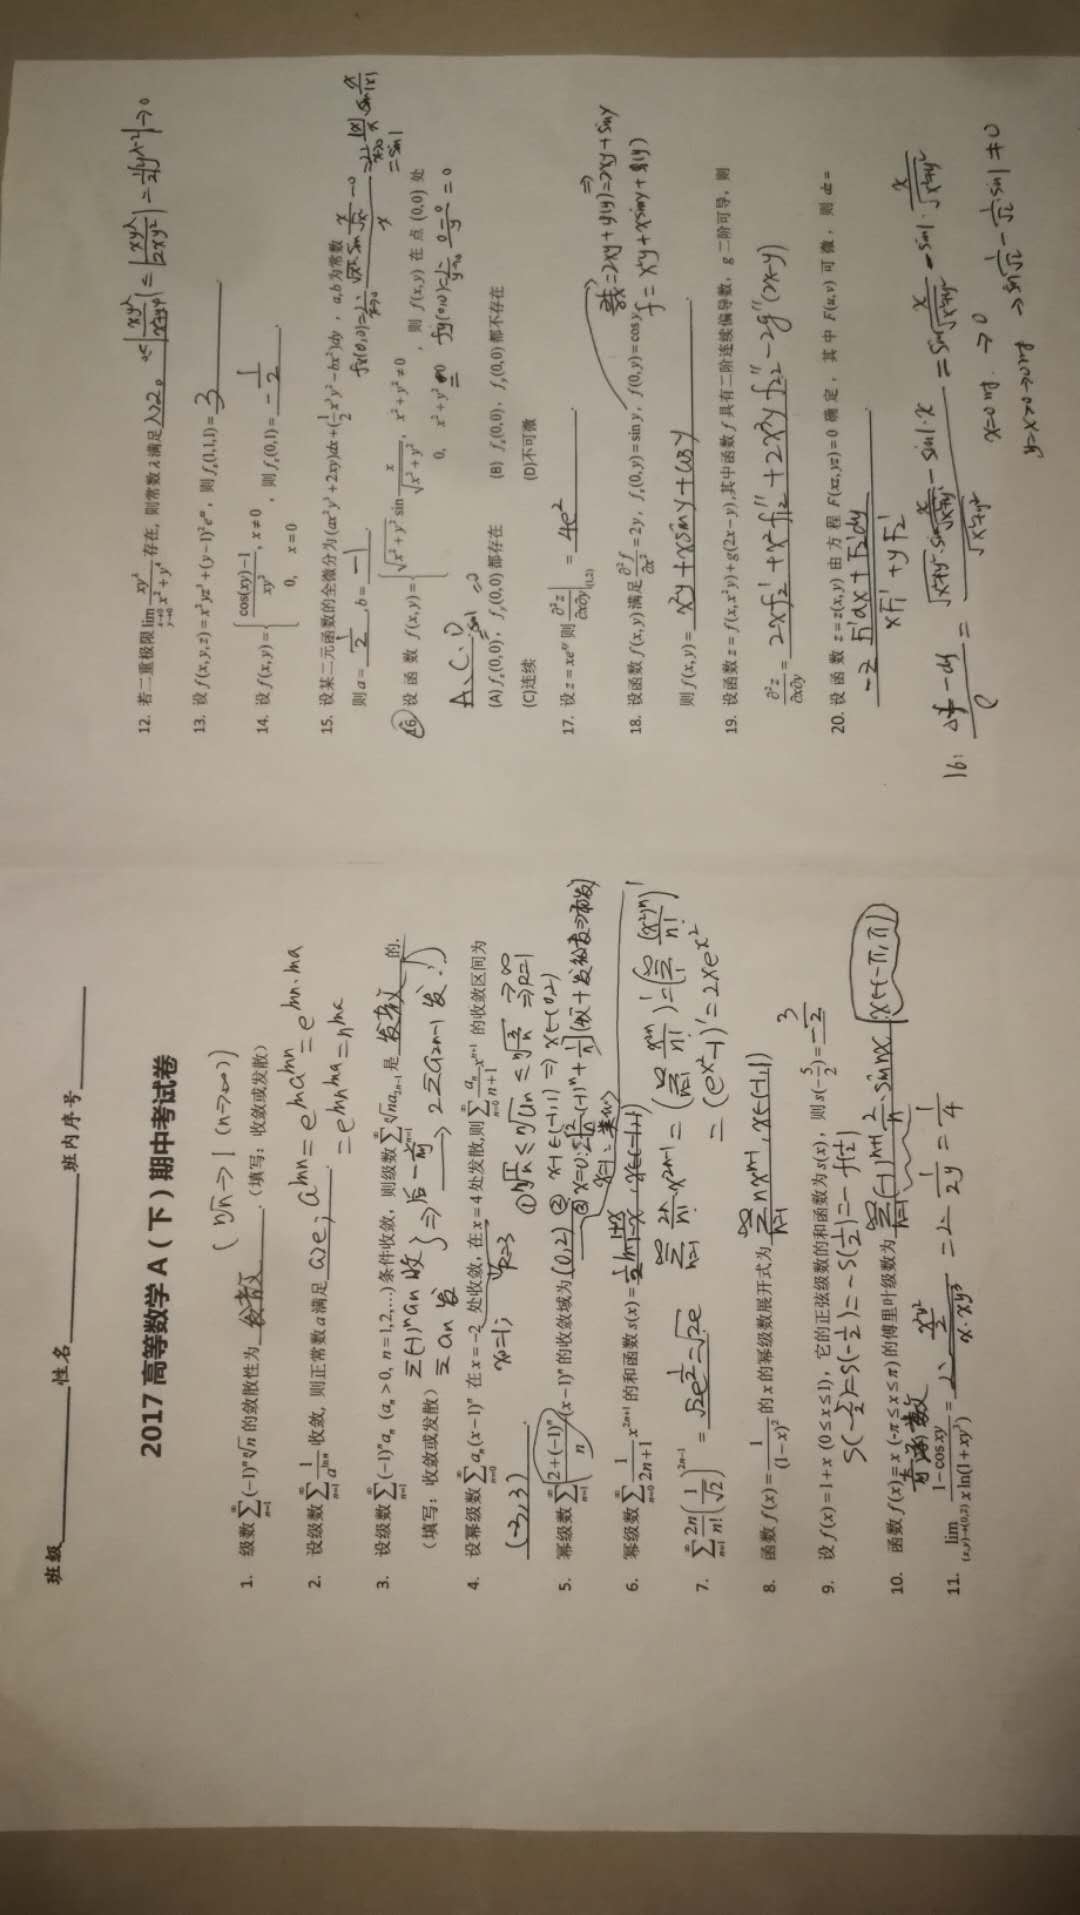 班级 姓名 班内序号
2017 高等数学 A（下）期中考试卷
(ⁿ√n → 1 (n→∞))
1. 级数 ∑_{n=1}^{∞} (-1)ⁿ ⁿ√n 的敛散性为 发散 .（填写：收敛或发散）
2. 设级数 ∑_{n=1}^{∞} 1/a^{ln n} 收敛, 则正常数 a 满足 a>e; a^{ln n} = e^{ln a^{ln n}} = e^{ln n·ln a}
= e^{ln n ln a} = n^{ln a}
3. 设级数 ∑_{n=1}^{∞} (-1)ⁿ aₙ (aₙ > 0, n = 1,2,...) 条件收敛, 则级数 ∑_{n=1}^{∞} ⁿ√n a_{2n-1} 是 发散 的.
（填写：收敛或发散） ∑(-1)ⁿ aₙ 收
∑ aₙ 发
∑ a_{2n-1} 发
4. 设幂级数 ∑_{n=0}^{∞} aₙ(x-1)ⁿ 在 x = -2 处收敛, 在 x = 4 处发散, 则 ∑_{n=0}^{∞} aₙ/(n+1) x^{n+1} 的收敛区间为
(-3,3) x₀=1; R=3
5. 幂级数 ∑_{n=1}^{∞} (2+(-1)ⁿ)/n (x-1)ⁿ 的收敛域为 (0,2) ② x-1∈(-1,1) ⇒ x∈(0,2)
6. 幂级数 ∑_{n=0}^{∞} 1/(2n+1) x^{2n+1} 的和函数 s(x) = 1/2 ln (1+x)/(1-x), x∈(-1,1)
7. ∑_{n=1}^{∞} 2n/n! (1/√2)^{2n-1} = √2 e^{1/2} = √2e
∑_{n=1}^{∞} 2n/n! x^{2n-1} = (∑_{n=1}^{∞} x^{2n}/n!)' = (∑_{n=1}^{∞} (x²)ⁿ/n!)'
= (e^{x²}-1)' = 2xe^{x²}
8. 函数 f(x) = 1/(1-x)² 的 x 的幂级数展开式为 ∑_{n=1}^{∞} n x^{n-1}, x∈(-1,1)
9. 设 f(x) = 1 + x (0 ≤ x ≤ 1), 它的正弦级数的和函数为 s(x), 则 s(-5/2) = -3/2
S(-5/2) = S(-1/2) = -S(1/2) = -f(1/2)
10. 函数 f(x) = x (-π ≤ x ≤ π) 的傅里叶级数为 ∑_{n=1}^{∞} (-1)^{n+1} 2/n sin nx x∈(-π,π)
奇函数
11. lim_{(x,y)→(0,2)} (1-cos xy)/(x ln(1+xy³)) = 1/2y = 1/4
12. 若二重极限 lim_{x→0, y→0} xy^λ/(x²+y⁴) 存在, 则常数 λ 满足 λ>2 。 0≤|xy^λ/(x²+y⁴)| ≤ |xy^λ/2xy²| = 1/2|y^{λ-2}| → 0
13. 设 f(x,y,z) = x²yz³ + (y-1)²e^{xz}, 则 f_z(1,1,1) = 3
14. 设 f(x,y) = { (cos(xy)-1)/xy², x≠0
0, x=0 , 则 f_x(0,1) = -1/2
15. 设某二元函数的全微分为 (ax²y² + 2xy)dx + (1/2 x³y² - bx²)dy , a,b 为常数
则 a = 1/2 , b = -1
16. 设函数 f(x,y) = { √(x²+y²) sin x/√(x²+y²), x²+y²≠0
0, x²+y²=0 , 则 f(x,y) 在点 (0,0) 处
A、C、D
(A) f_x(0,0), f_y(0,0) 都存在 (B) f_x(0,0), f_y(0,0) 都不存在
(C)连续 (D)不可微
17. 设 z = xe^{xy} 则 ∂²z/∂x∂y |_{(1,2)} = 4e² .
18. 设函数 f(x,y) 满足 ∂²f/∂x² = 2y, f_x(0,y) = sin y, f(0,y) = cos y,
=2xy+φ(y) = 2xy + sin y
f = x²y + x sin y + g(y)
则 f(x,y) = x²y + x sin y + cos y
19. 设函数 z = f(x, x²y) + g(2x-y), 其中函数 f 具有二阶连续偏导数, g 二阶可导, 则
∂²z/∂x∂y = 2xf₂' + x²f₁₂'' + 2x³y f₂₂'' - 2g''(2x-y)
20. 设函数 z = z(x,y) 由方程 F(xz, yz) = 0 确定, 其中 F(u,v) 可微, 则 dz =
-z (F₁'dx + F₂'dy)/(xF₁' + yF₂')
16: (Δf - df)/ρ = (√(x²+y²)·sin x/√(x²+y²) - sin1·x)/√(x²+y²) = sin x/√(x²+y²) - sin1·x/√(x²+y²)
x=0时, →0
y=x>0→0时, → sin 1/√2 - 1/√2 sin1 ≠ 0